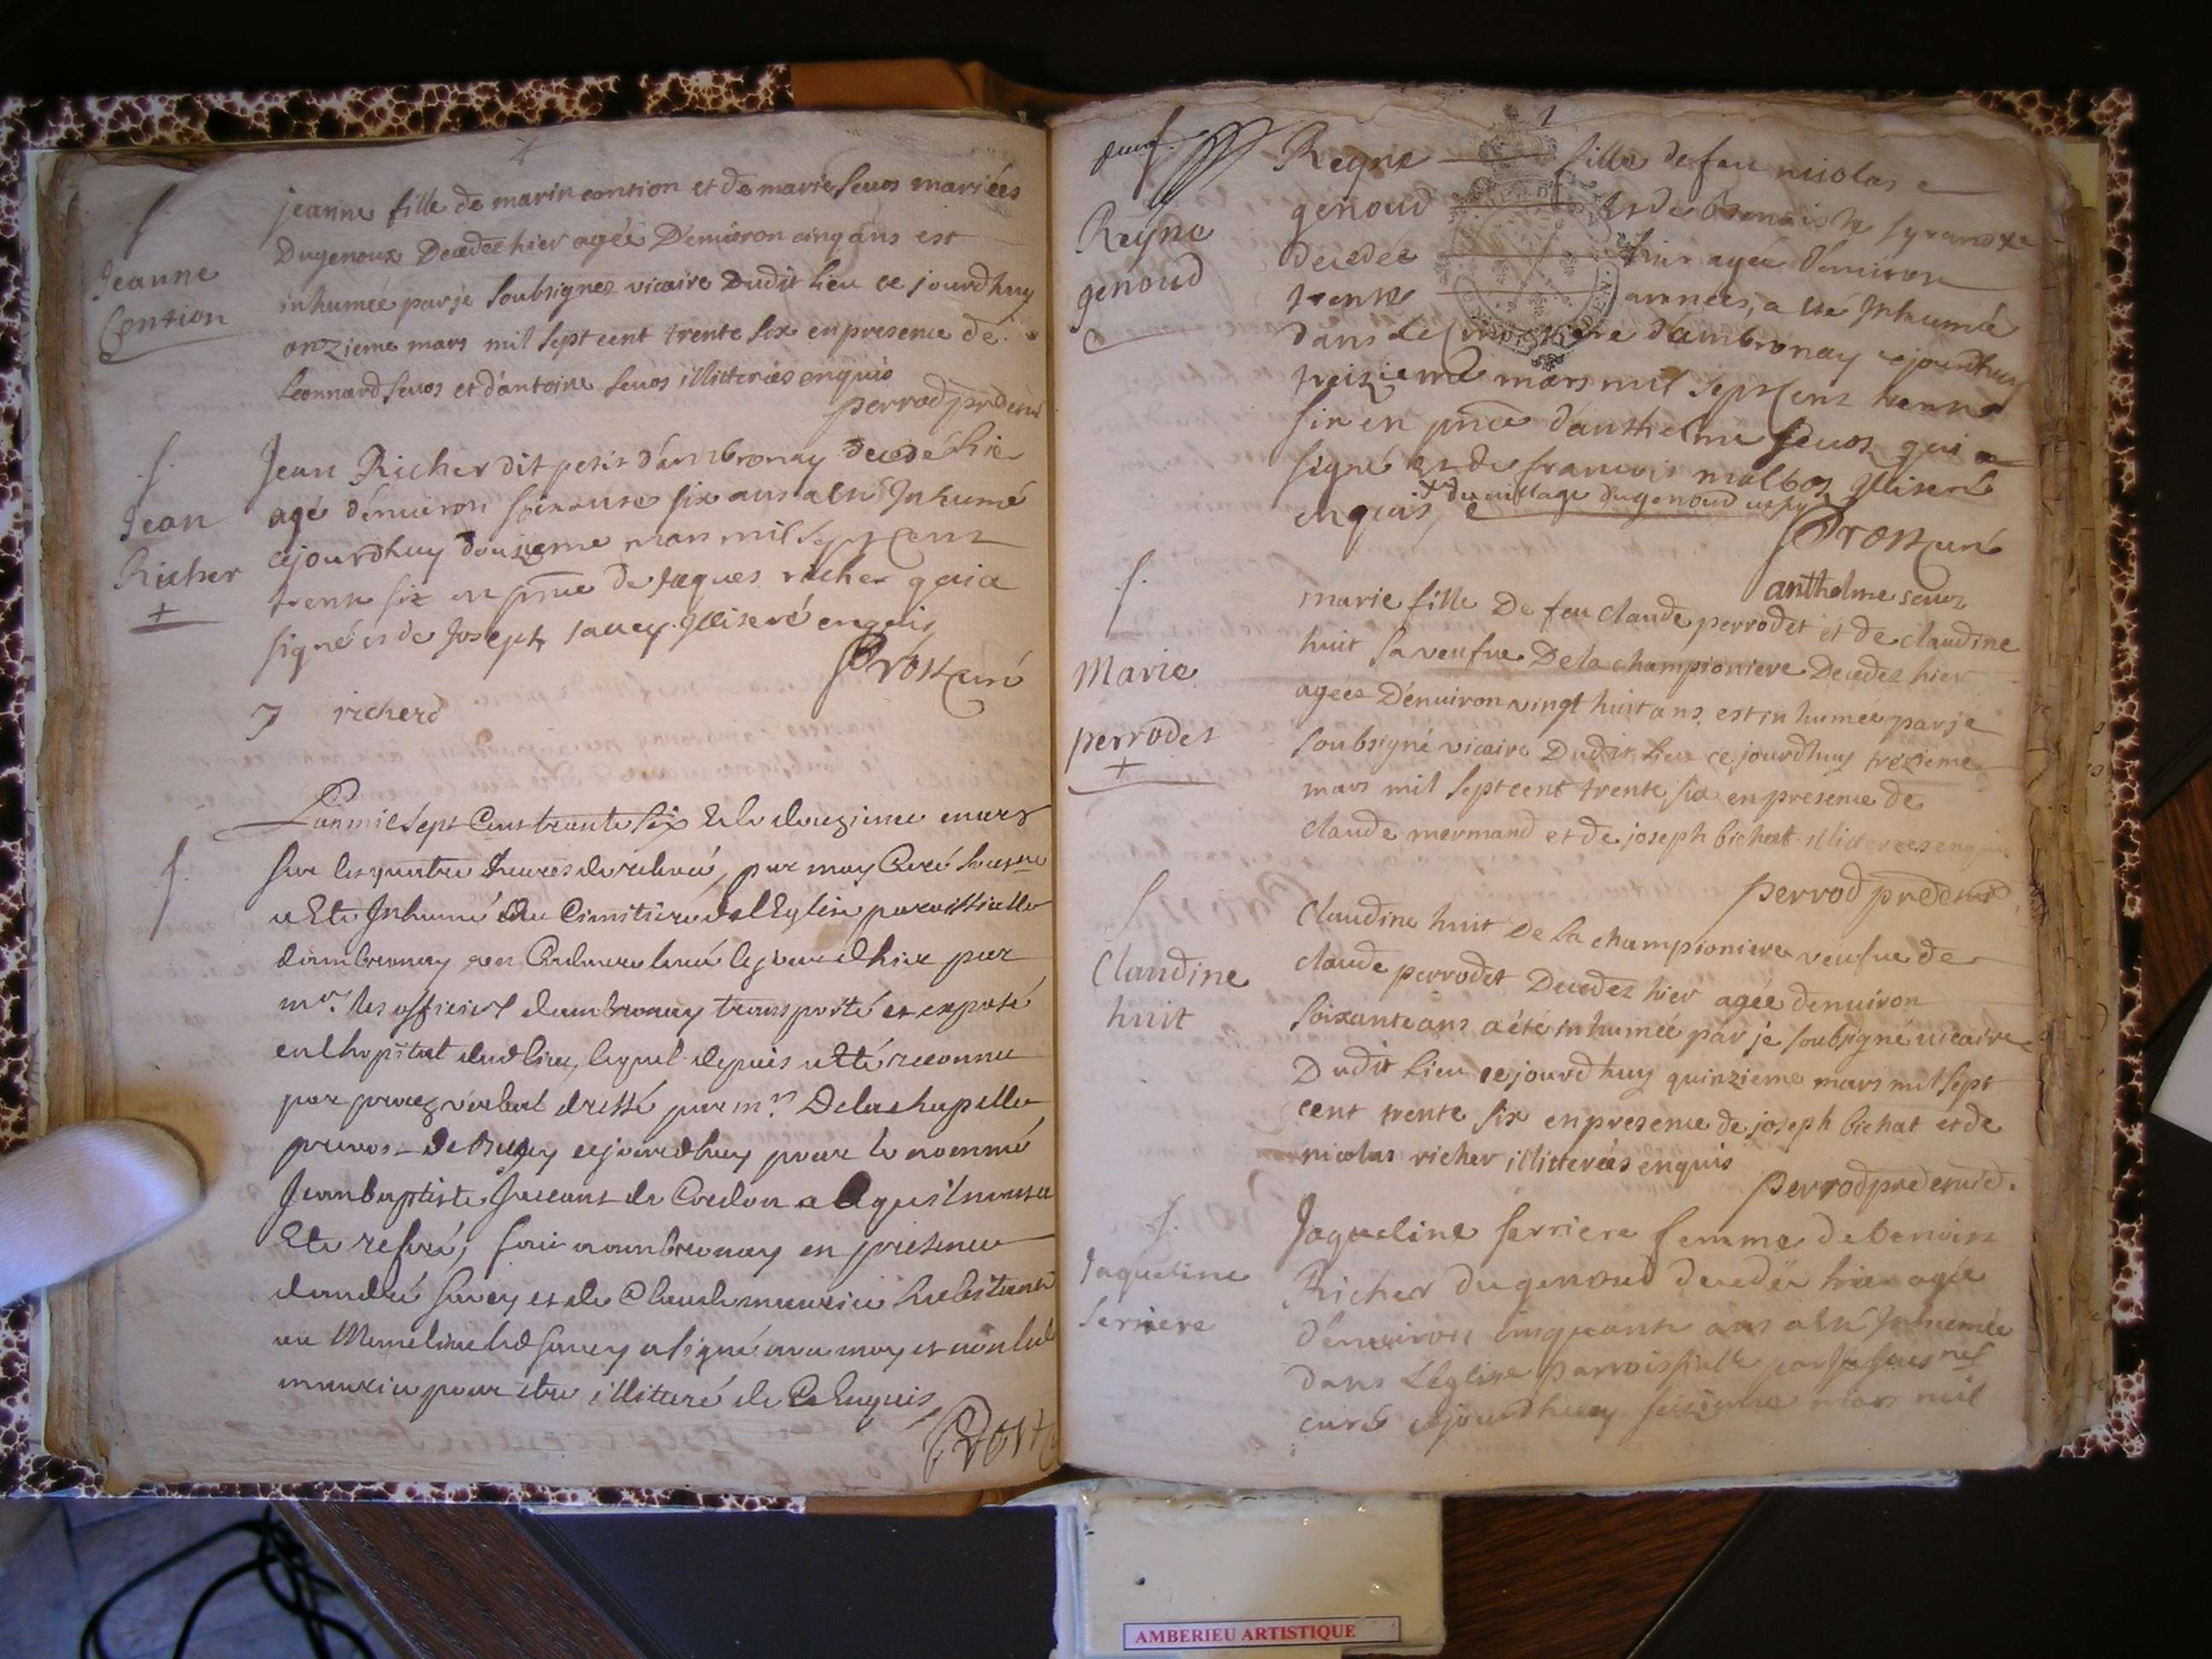 Jeanne
Contion
jeanne fille de marin contion et de marie seuos mariées
Dugenoux Decedée hier agée D'enuiron cinq ans est
inhumée par je soubsignez vicaire Dudit lieu ce jourdhuy
onzieme mars mil sept cent trente six en presence de
Leonnard seuos et d'antoine seuos illitterées enquis
perrod
Jean
Richer
+
Jean Richer dit petit d'ambronay decedé hier
agé d'enuiron soixante six ans a esté Inhumé
cejourdhuy douzieme mars mil sept cent
trente six en pnce de Jaques richer qui a
signé et de Joseph sauey Illiteré enquis
Prost curé
J richerd
Lan mil sept Cens trante six & le douzieme mars
sur les quatre heures de releué, par moy Curé sousne
a Eté Inhumé au Cimitiere de lEglise paroissialle
dambronay un Cadavre leué le jour dhier par
mrs les officiers dambronay transporté et exposé
en lhopital dud lieu, lequel depuis a Eté reconnu
par procez verbal dressé par mr Delachapelle
preuost de Bugey cejourdhuy pour le nommé
Jean baptiste de Cordon a qu'il nous a
Eté referé, fait a ambronay en presence
dandré sauey et de Claude habitants
au led sauey a signé auec moy et non led
pour etre illiteré de Ce Enquis
Prost
Reyne
genoud
Reyne fille de feu nicolas
genoud et de
decedée hier agée d'enuiron
trente années, a esté Inhumée
dans le Cimetiere d'ambronay cejourdhuy
treizieme mars mil sept Cent trente
six en pnce d'anthelme seuoz qui a
signé et de francois malboz Illiteré
enquis
+ du village du genoud
Prost curé
anthelme seuoz
Marie
perrodet
+
marie fille De feu claude perrodet et de claudine
huit sa veufue De la championiere Decedez hier
agées D'enuiron vingt huit ans est inhumée par je
soubsigné vicaire Dudit lieu ce jourdhuy trezieme
mars mil sept cent trente six en presence de
claude mermand et de joseph bichat illitterees
perrod
Claudine
huit
Claudine huit De la championiere veufue de
claude perrodet Decedez hier agée denuiron
soixante ans a été inhumée par je soubsigné vicaire
Dudit lieu ce jourdhuy quinzieme mars mil sept
cent trente six en presence de joseph bichat et de
nicolas richer illitterées enquis
perrod
Jaqueline
serriere
Jaqueline serriere femme de benoist
Richer du genoud decedée hier agée
d'enuiron cinquante ans a esté Inhumée
dans l'église parroissialle par
curé cejourdhuy seizieme mars mil
AMBERIEU ARTISTIQUE